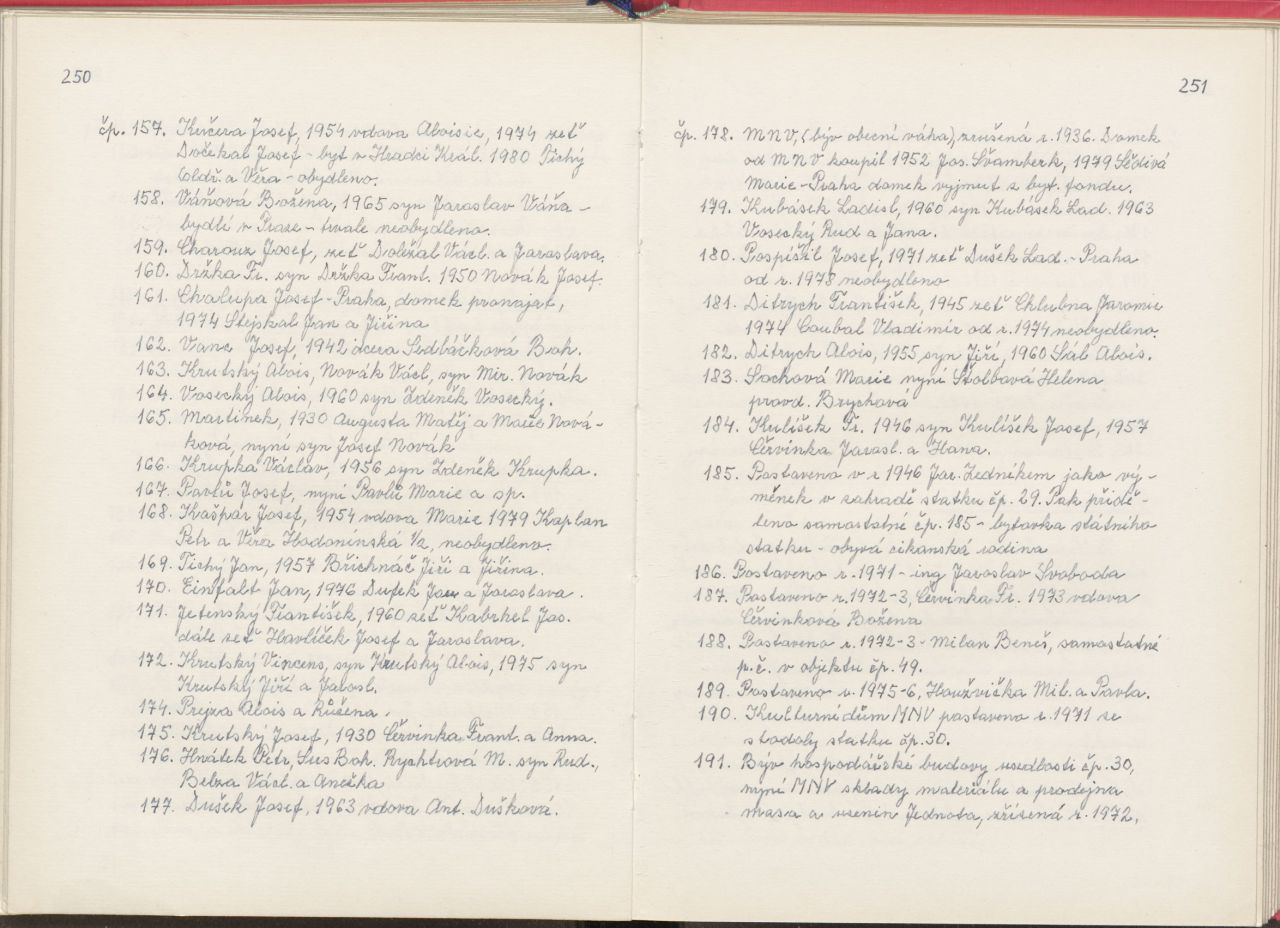 250
čp. 157. Kučera Josef, 1954 vdova Aloisie, 1974 zeť
Dočekal Josef - byt v Hradci Král. 1980 Tichý
Oldř. a Věra - obydleno.
158. Váňová Božena, 1965 syn Jaroslav Váňa -
bydlí v Praze - trvale neobydleno.
159. Charouz Josef, zeť Doležal Václ. a Jaroslava.
160. Držka Fr. syn Držka Frant. 1950 Novák Josef.
161. Chalupa Josef - Praha, domek pronajat,
1974 Stejskal Jan a Jiřina
162. Vanc Josef, 1942 dcera Sedláčková Boh.
163. Krutský Alois, Novák Václ, syn Mir. Novák
164. Vosecký Alois, 1960 syn Zdeněk Vosecký.
165. Martinek, 1930 Augusta Matěj a Marie Nová-
ková, nyní syn Josef Novák
166. Krupka Václav, 1956 syn Zdeněk Krupka.
167. Pavlů Josef, nyní Pavlů Marie a sp.
168. Kašpar Josef, 1954 vdova Marie 1979 Kaplan
Petr a Věra Hodoninská 1/2, neobydleno.
169. Tichý Jan, 1957 Břichnáč Jiří a Jiřina.
170. Einfalt Jan, 1976 Dufek a Jaroslava.
171. Jetenský František, 1960 zeť Kabrhel Jos.
dále zeť Havlíček Josef a Jaroslava.
172. Krutský Vincens, syn Krutský Alois, 1975 syn
Krutský Jiří a Jarosl.
174. Prejza Alois a Růžena.
175. Krutský Josef, 1930 Červinka Frant. a Anna.
176. Hnátek Petr, Sus Boh. Rychtrová M. syn Rud.,
Belza Václ. a Anežka
177. Dušek Josef, 1963 vdova Ant. Dušková.
251
čp. 178. MNV, (býv obecní váha), zrušená r. 1936. Domek
od MNV koupil 1952 Jos. Švamberk, 1979 Šedivá
Marie - Praha domek vyjmut z byt. fondu.
179. Kubásek Ladisl, 1960 syn Kubásek Lad. 1963
Vosecký Rud a Jana.
180. Pospíšil Josef, 1971 zeť Dušek Lad. - Praha
od r. 1978 neobydleno
181. Ditrych František, 1945 zeť Chlubna Jaromir
1974 Coubal Vladimír od r. 1974 neobydleno.
182. Ditrych Alois, 1955 syn Jiří, 1960 Sál Alois.
183. Sochová Marie nyní Štolbová Helena
provd. Brychová
184. Kulíšek Fr. 1946 syn Kulíšek Josef, 1957
Červinka Jarosl. a Hana.
185. Postaveno v r 1946 Jar. Zedníkem jako vý-
měnek v zahradě statku čp. 29. Pak přidě-
leno samostatné čp. 185 - bytovka státního
statku - obývá cikánská rodina
186. Postaveno r. 1971 - ing Jaroslav Svoboda
187. Postaveno r. 1972-3, Červinka Fr. 1973 vdova
Červinková Božena
188. Postaveno r. 1972-3 - Milan Beneš, samostatné
p.č. v objektu čp. 49.
189. Postaveno v. 1975-6, Houžvička Mil. a Pavla.
190. Kulturní dům MNV postaveno r. 1971 ze
stodoly statku čp. 30.
191. Býv hospodářské budovy usedlosti čp. 30,
nyní MNV sklady materiálu a prodejna
masa a uzenin Jednota, zřízená r. 1972.